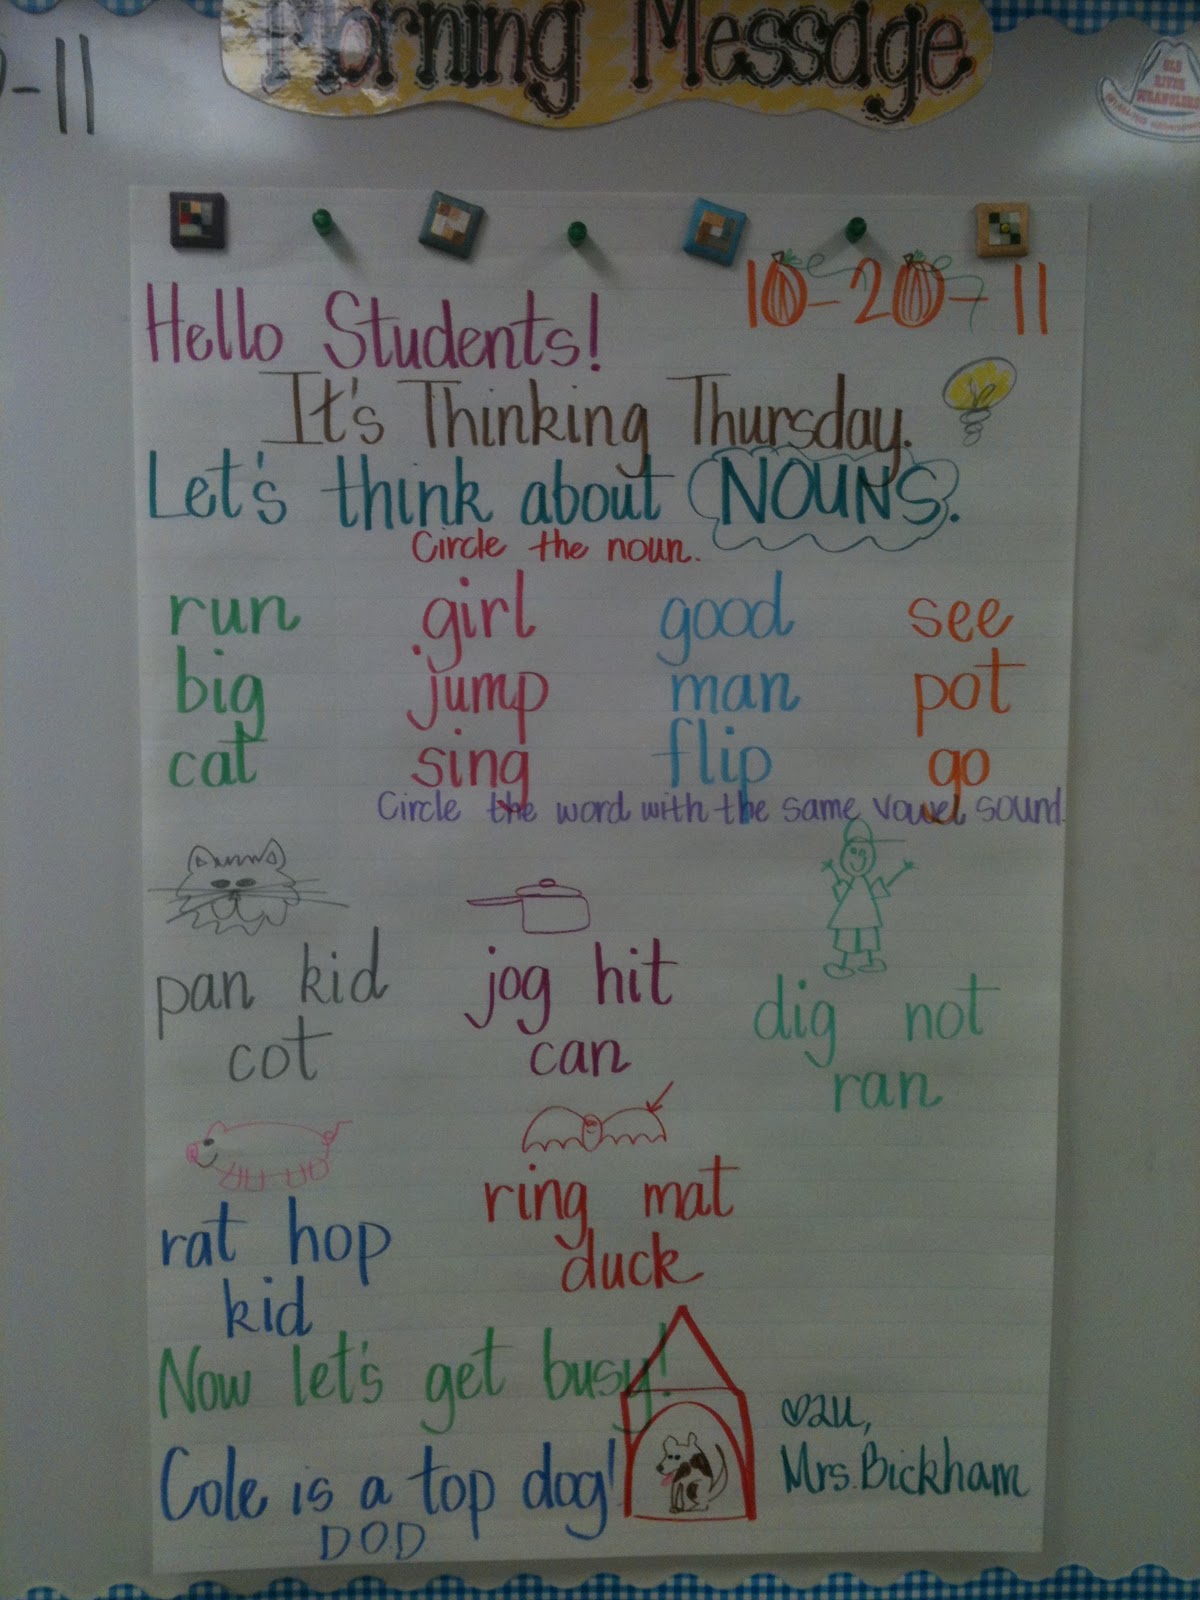 Morning Message
-11
OLD
RIVER
WRANGLERS
10-20-11
Hello Students!
It's Thinking Thursday.
Let's think about NOUNS.
Circle the noun.
run girl good see
big jump man pot
cat sing flip go
Circle the word with the same vowel sound.
pan kid
cot
jog hit
can
dig not
ran
rat hop
kid
ring mat
duck
Now let's get busy!
Cole is a top dog!
DOD
♡2U,
Mrs. Bickham